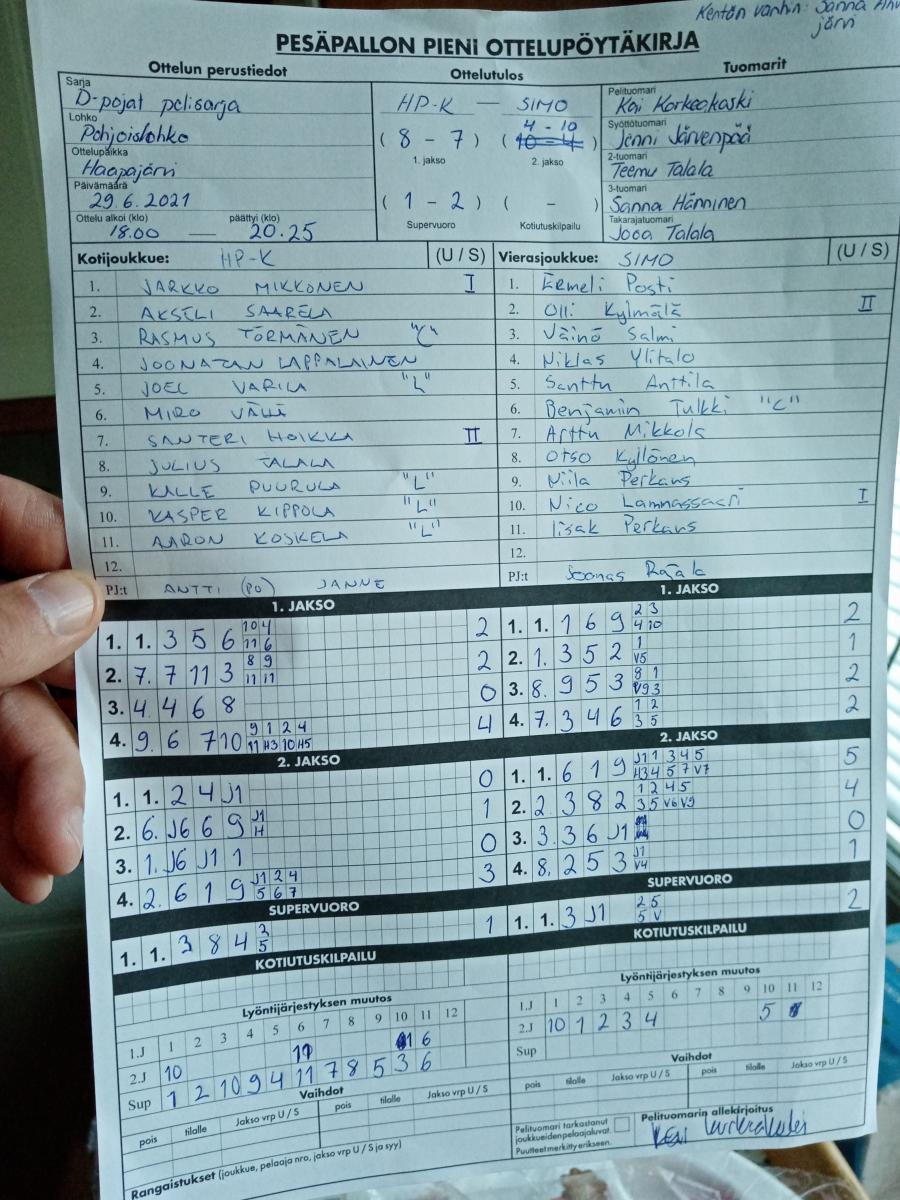 Kentän vanhin: Sanna
järvi
PESÄPALLON PIENI OTTELUPÖYTÄKIRJA
Ottelun perustiedot Ottelutulos Tuomarit
Sarja
D-pojat pelisarja
Lohko
Pohjoislohko
Ottelupaikka
Haapajärvi
Päivämäärä
29.6.2021
Ottelu alkoi (klo) päättyi (klo)
18.00 — 20.25
HP-K — SIMO
4 - 10
( 8 - 7 ) ( 10 - 4 )
1. jakso 2. jakso
( 1 - 2 ) ( - )
Supervuoro Kotiutuskilpailu
Pelituomari
Kai Korkeakoski
Syöttötuomari
Jenni Järvenpää
2-tuomari
Teemu Talala
3-tuomari
Sanna Hänninen
Takarajatuomari
Jooa Talala
Kotijoukkue: HP-K (U / S)
1. JARKKO MIKKONEN I
2. AKSELI SAARELA
3. RASMUS TÖRMÄNEN "C"
4. JOONATAN LAPPALAINEN
5. JOEL VARILA "L"
6. MIRO
7. SANTERI HOIKKA II
8. JULIUS TALALA
9. KALLE PUURULA "L"
10. KASPER KIPPOLA "L"
11. AARON KOSKELA "L"
12.
PJ:t ANTTI (PO) JANNE
Vierasjoukkue: SIMO (U / S)
1. Eemeli Posti
2. Olli Kylmälä II
3. Väinö Salmi
4. Niklas Ylitalo
5. Santtu Anttila
6. Benjamin Tulkki "C"
7. Arttu Mikkola
8. Otso Kyllönen
9. Niila Perkans
10. Nico I
11. Iisak Perkans
12.
PJ:t Joonas Rajala
1. JAKSO
1. 1. 3 5 6 10 4 2
11 6
2. 7. 7 11 3 8 9 2
11 11
3. 4 4 6 8 0
4. 9. 6 7 10 9 1 2 4 4
11 H3 10 H5
2. JAKSO
1. 1. 2 4 J1 0
2. 6. J6 6 9 J1 1
H
3. 1. J6 J1 1 0
4. 2. 6 1 9 J1 2 4 3
5 6 7
SUPERVUORO
1. 1. 3 8 4 3 1
5
KOTIUTUSKILPAILU
1. JAKSO
1. 1. 1 6 9 2 3 2
4 10
2. 1. 3 5 2 1 1
V5
3. 8. 9 5 3 8 1 2
V9 3
4. 7. 3 4 6 1 2 2
3 5
2. JAKSO
1. 1. 6 1 9 J1 1 3 4 5 5
H3 4 5 7 V7
2. 2. 3 8 2 1 2 4 5 4
3 5 V6 V9
3. 3. 3 6 J1 0
4. 8. 2 5 3 J1 1
V4
SUPERVUORO
1. 1. 3 J1 2 5 2
5 V
KOTIUTUSKILPAILU
Lyöntijärjestyksen muutos
1.J 1 2 3 4 5 6 7 8 9 10 11 12
2.J 10 11 6
Sup 1 2 10 9 4 11 7 8 5 3 6
Vaihdot
pois tilalle Jakso vrp U / S pois tilalle Jakso vrp U / S
Lyöntijärjestyksen muutos
1.J 1 2 3 4 5 6 7 8 9 10 11 12
2.J 10 1 2 3 4 5
Sup
Vaihdot
pois tilalle Jakso vrp U / S pois tilalle Jakso vrp U / S
Rangaistukset (joukkue, pelaaja nro, jakso vrp U / S ja syy)
Pelituomari tarkastanut
joukkueiden pelaajaluvat.
Puutteet merkitty erikseen.
Pelituomarin allekirjoitus